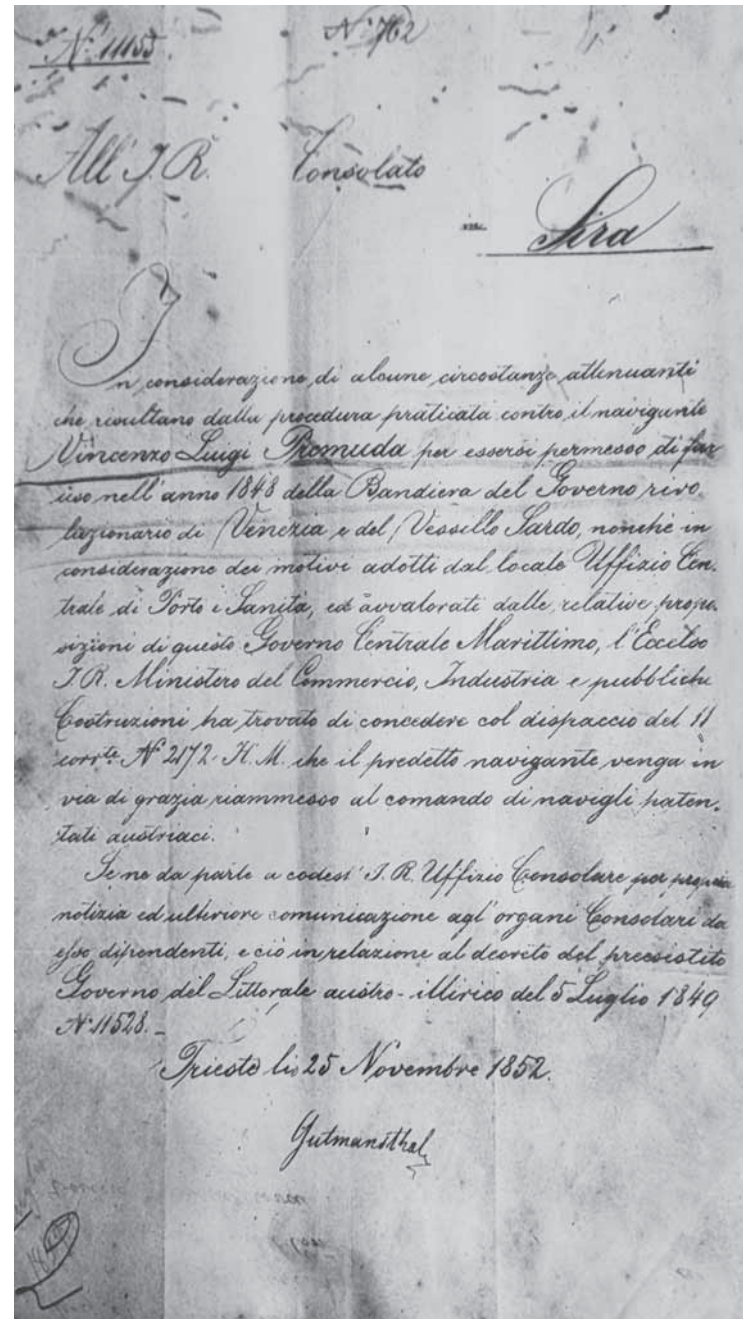 N° 11155. N° 762
All' I. R. Consolato
Sira
In considerazione di alcune circostanze attenuanti
che risultano dalla procedura praticata contro il navigante
Vincenzo Luigi Premuda per essersi permesso di far
uso nell' anno 1848 della Bandiera del Governo rivo-
luzionario di Venezia e del Vessillo Sardo, nonchè in
considerazione dei motivi adotti dal locale Uffizio Cen-
trale di Porto e Sanità, ed avvalorati dalle relative propo-
sizioni di questo Governo Centrale Marittimo, l'Eccelso
I. R. Ministero del Commercio, Industria e pubbliche
Costruzioni ha trovato di concedere col dispaccio del 11
corrte N° 2172-H. M. che il predetto navigante venga in
via di grazia riammesso al comando di navigli paten-
tati austriaci.
Se ne da parte a codest' I. R. Uffizio Consolare per propria
notizia ed ulteriore comunicazione agl' organi Consolari da
esso dipendenti, e ciò in relazione al decreto del preesistito
Governo del Littorale austro-illirico del 5 Luglio 1849
N° 11528. _
Trieste li 25 Novembre 1852.
Gutmansthal